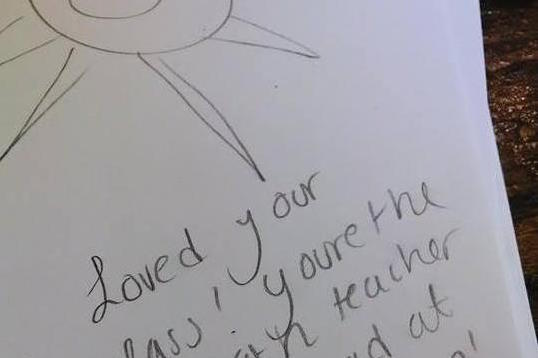 Loved your
lass! youre the
th teacher
d at